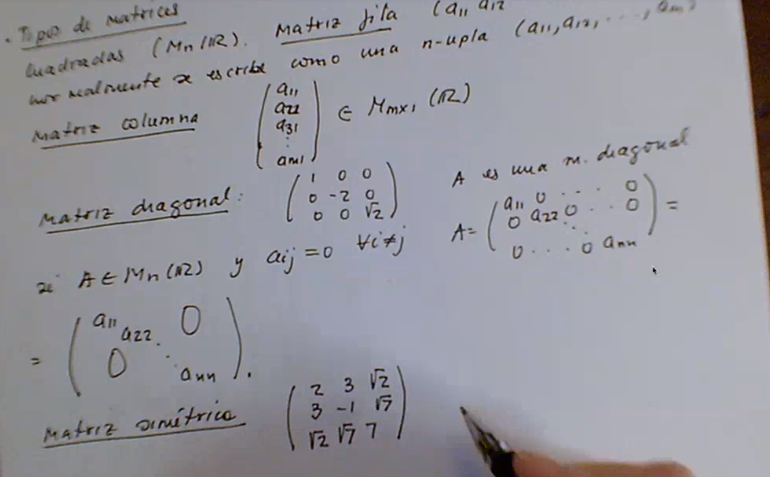 · Tipos de matrices
Cuadradas (Mn(ℝ)). Matriz fila (a11 a12
normalmente se escribe como una n-upla (a11, a12, ..., a1n)
Matriz columna (a11 a22 a31 ⋮ am1) ∈ Mmx1(ℝ)
Matriz diagonal: (1 0 0
0 -2 0
0 0 √2)
A es una m. diagonal
si A ∈ Mn(ℝ) y aij = 0 ∀i≠j
A = (a11 0 ... 0
0 a22 0 ... 0
⋱
0 ... 0 ann) =
= (a11 a22 0
0 ⋱ ann).
Matriz simétrica (2 3 √2
3 -1 √7
√2 √7 7)